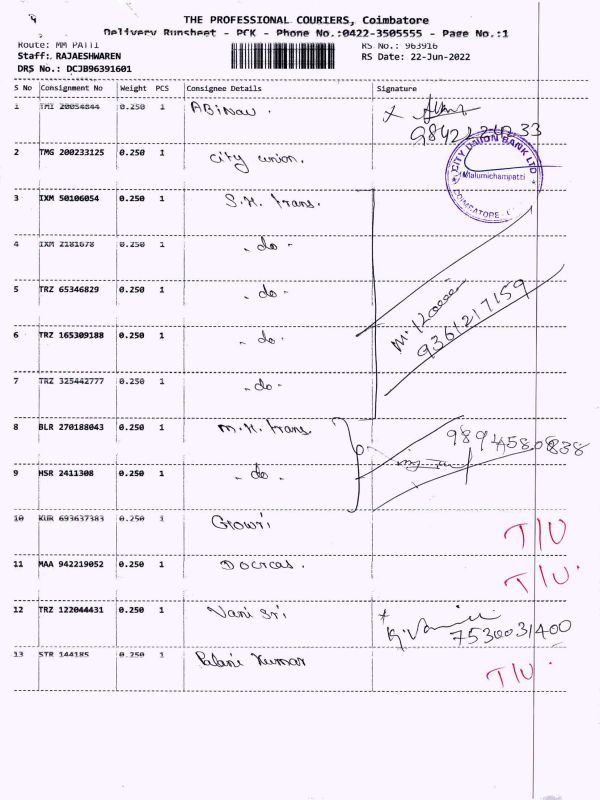 THE PROFESSIONAL COURIERS, Coimbatore
Delivery Runsheet - PCK - Phone No.:0422-3505555 - Page No.:1
Route: MM PATTI RS No.: 963916
Staff: RAJAESHWAREN RS Date: 22-Jun-2022
DRS No.: DCJB96391601
S No Consignment No Weight PCS Consignee Details Signature
1 TMI 20054844 0.250 1 ABinav.
2 TMG 200233125 0.250 1 city union.
CITY UNION BANK LTD
Malumichampatti
COIMBATORE
3 IXM 50106054 0.250 1 S.H. trans.
4 IXM 2181678 0.250 1 - do -
5 TRZ 65346829 0.250 1 - do -
9361217159
6 TRZ 165309188 0.250 1 - do -
7 TRZ 325442777 0.250 1 - do -
8 BLR 270188043 0.250 1 M.H. trans.
9894580838
9 HSR 2411308 0.250 1 - do -
10 KUR 693637383 0.250 1 Gowri T/U
11 MAA 942219052 0.250 1 Docrcas. T/U.
12 TRZ 122044431 0.250 1 Vani Sri
7530031400
13 STR 144185 0.250 1 Palani Kumar T/U.